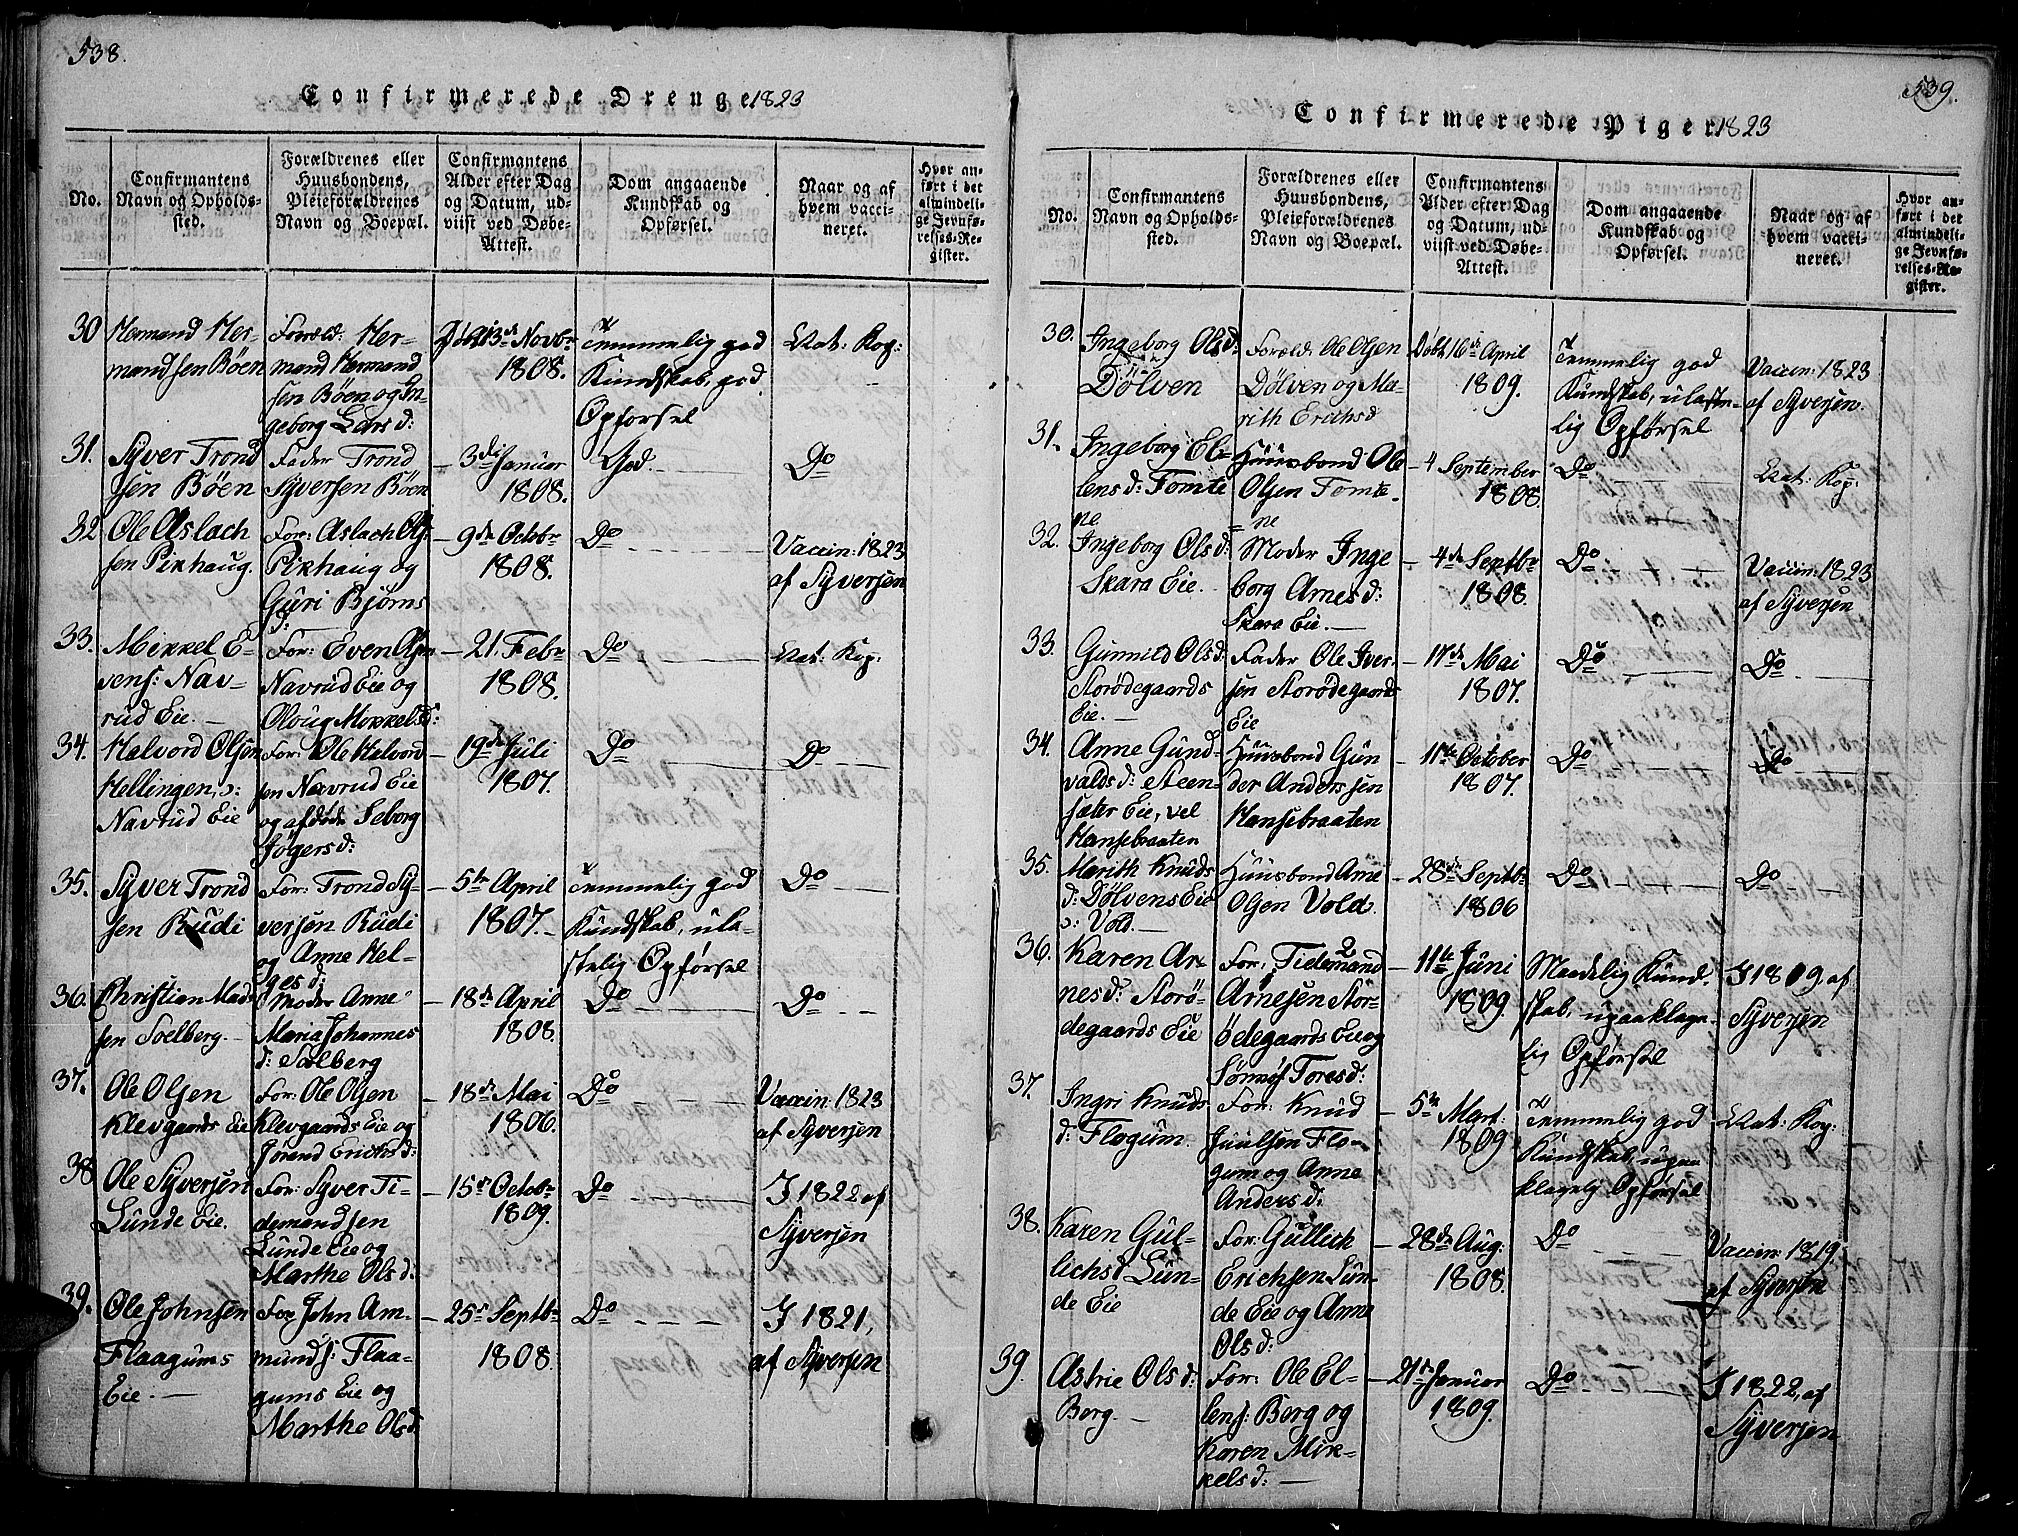 538.
Confirmerede Drenge 1823
No.
Confirmantens
Navn og Opholds-
sted.
Forældrenes eller
Huusbondens,
Pleieforældrenes
Navn og Boepæl.
Confirmantens
Alder efter Dag
og Datum, ud-
viist ved Døbe-
Attest.
Dom angaaende
Kundskab og
Opførsel.
Naar og af
hvem vacci-
neret.
Hvor an-
ført i det
almindeli-
ge Jevnfø-
relses-Re-
gister.
30
Hermand Her-
mandsen Böen
Foræld: Her-
mand Hermand
sen Böen og In-
geborg Lars d:
13de Novbr
1808.
Temmelig god
Kundskab, god
Opførsel
Nat: Kop:
31.
Syver Trond
sen Böen
Fader Trond
Syversen Böen
3di Januar
1808.
God.
Do
32
Ole Aslach
sen Pixhaug.
For: Aslach Ols:
Pixhaug og
Guri Bjørns
d:
9de Octobr
1808.
Do
Vaccin: 1823
af Syversen
33.
Mikkel E-
vens: Nav-
rud Eie.
For: Even Olsen
Navrud Eie og
Oloug Mikkels d:
21. Febr
1808.
Do
Nat: Kop:
34.
Halvord Olsen
Hellingen, ɔ:
Navrud Eie
For: Ole Halvord
sen Navrud Eie
og afdöde Seborg
Jögers d:
19de Juli
1807.
Do
Do
35.
Syver Trond
sen Rudi
For: Trond Sy-
versen Rudi
og Anne Hel-
ges d:
5te April
1807.
Temmelig god
Kundskab, ula-
stelig Opførsel
Do
36.
Christian Mad-
sen Soelberg.
Moder Anne
Maria Johannes
d: Solberg
18de April
1808.
Do
Do
37.
Ole Olsen
Klevgaards Eie
For: Ole Olsen
Klevgaards Eie og
Jörand Erichs d:
18de Mai
1806.
Do
Vaccin: 1823
af Syversen
38
Ole Syversen
Lunde Eie.
For: Syver Ti-
demandsen
Lunde Eie og
Marthe Ols d:
15de Octobr
1809.
Do
I 1822 af
Syversen
39.
Ole Johnsen
Flaagums
Eie.
For John Am-
munds: Flaa-
gums Eie og
Marthe Olsd.
25de Septbr
1808.
Do
I 1821,
af Syversen
539.
Confirmerede Piger 1823
No.
Confirmantens
Navn og Opholds-
sted.
Forældrenes eller
Huusbondens,
Pleieforældrenes
Navn og Boepæl.
Confirmantens
Alder efter Dag
og Datum, ud-
viist ved Døbe-
Attest.
Dom angaaende
Kundskab og
Opførsel.
Naar og af
hvem vacci-
neret.
Hvor an-
ført i det
almindeli-
ge Jevnfø-
relses-Re-
gister.
30.
Ingeborg Ols d:
Dölven
Foræld: Ole Olsen
Dölven og Ma-
rith Erichsd
Döbt 16de April
1809.
Temmelig god
Kundskab, ulaste-
lig Opførsel
Vaccin: 1823
af Syversen.
31.
Ingeborg El-
lens d: Tomte
ne
Huusbond Ole
Olsen Tomte-
ne
4 September
1808.
Do
Nat: Kop:
32.
Ingeborg Ols d:
Skara Eie.
Moder Inge
borg Arnes d:
Skara Eie.
4de Septbr
1808.
Do
Vaccin: 1823
af Syversen
33.
Gunnild Ols d:
Storödegaards
Eie.
Fader Ole Iver-
sen Storödegaards
Eie
17de Mai
1807.
Do
Do
34.
Anne Gund-
valds d: Steen-
sæter Eie, vel
Hansebraaten
Huusbond Gun
der Anderssen
Hansebraaten
11te October
1807.
Do
Do
35.
Marith Knuds
d: Dölvens Eie
ɔ: Vold.
Huusbond Arne
Olsen Vold.
28de Septbr
1806
Do
Do
36.
Karen Ar-
nes d: Storö-
degaards Eie
For: Tidemand
Arnesen Stor-
ödegaards Eie og
Sönnöf Tores d:
11te Juni
1809.
Maadelig Kund-
skab, upaaklage-
lig Opførsel
I 1809. af
Syversen
37.
Ingri Knuds
d: Flogum.
For: Knud
Juulsen Flo-
gum og Anne
Anders d:
5te Mart:
1809.
Temmelig god
Kundskab, upaa
klagelig Opførsel
Nat: Kop:
38.
Karen Gul-
lichsd Lun-
de Eie
For: Gullich
Erichsen Lun-
de Eie og Anne
Ols d:
28de Aug:
1808.
Do
Vaccin: 1819.
af Syversen
39.
Astrie Ols d:
Berg.
For: Ole El-
lens: Berg og
Karen Mik-
kels d:
21de Januar
1809.
Do
I 1822, af
Syversen